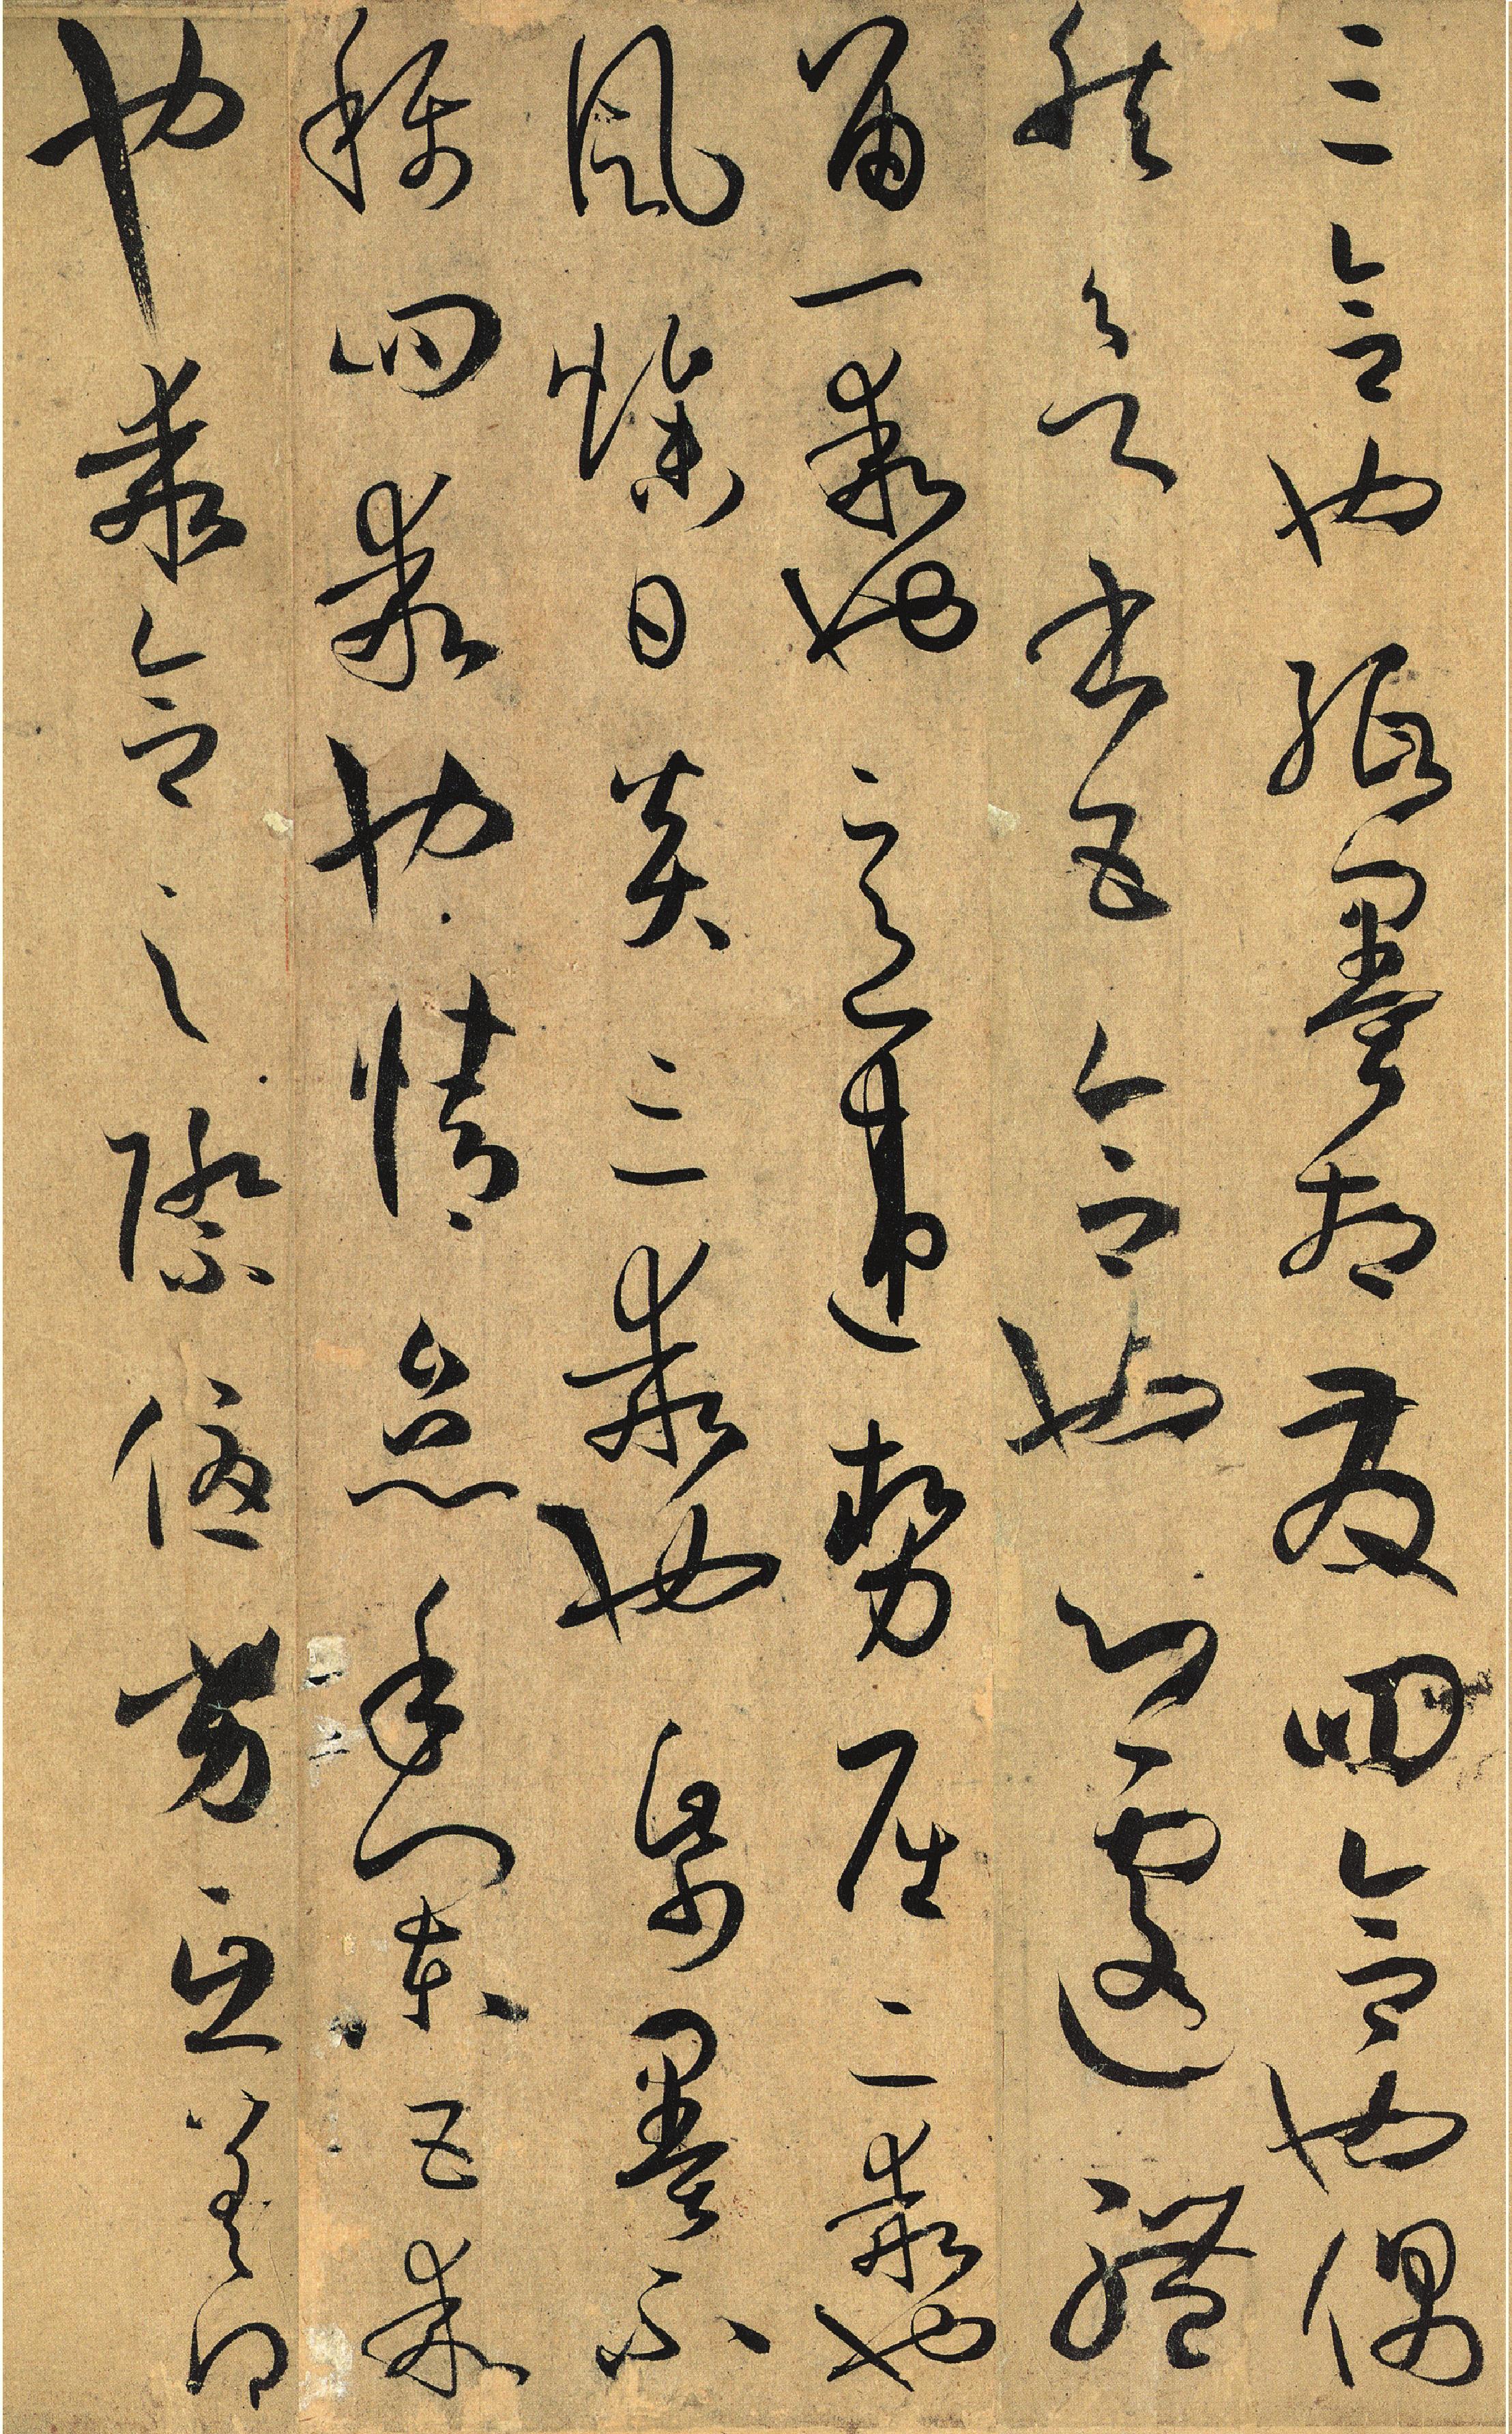 三合也紙墨相發四合也偶
然欲書五合也心遽體
留一乖也意違勢屈二乖也
風燥日炎三乖也帋墨不
稱四乖也情怠手闌五乖
也乖合之際優劣互差得